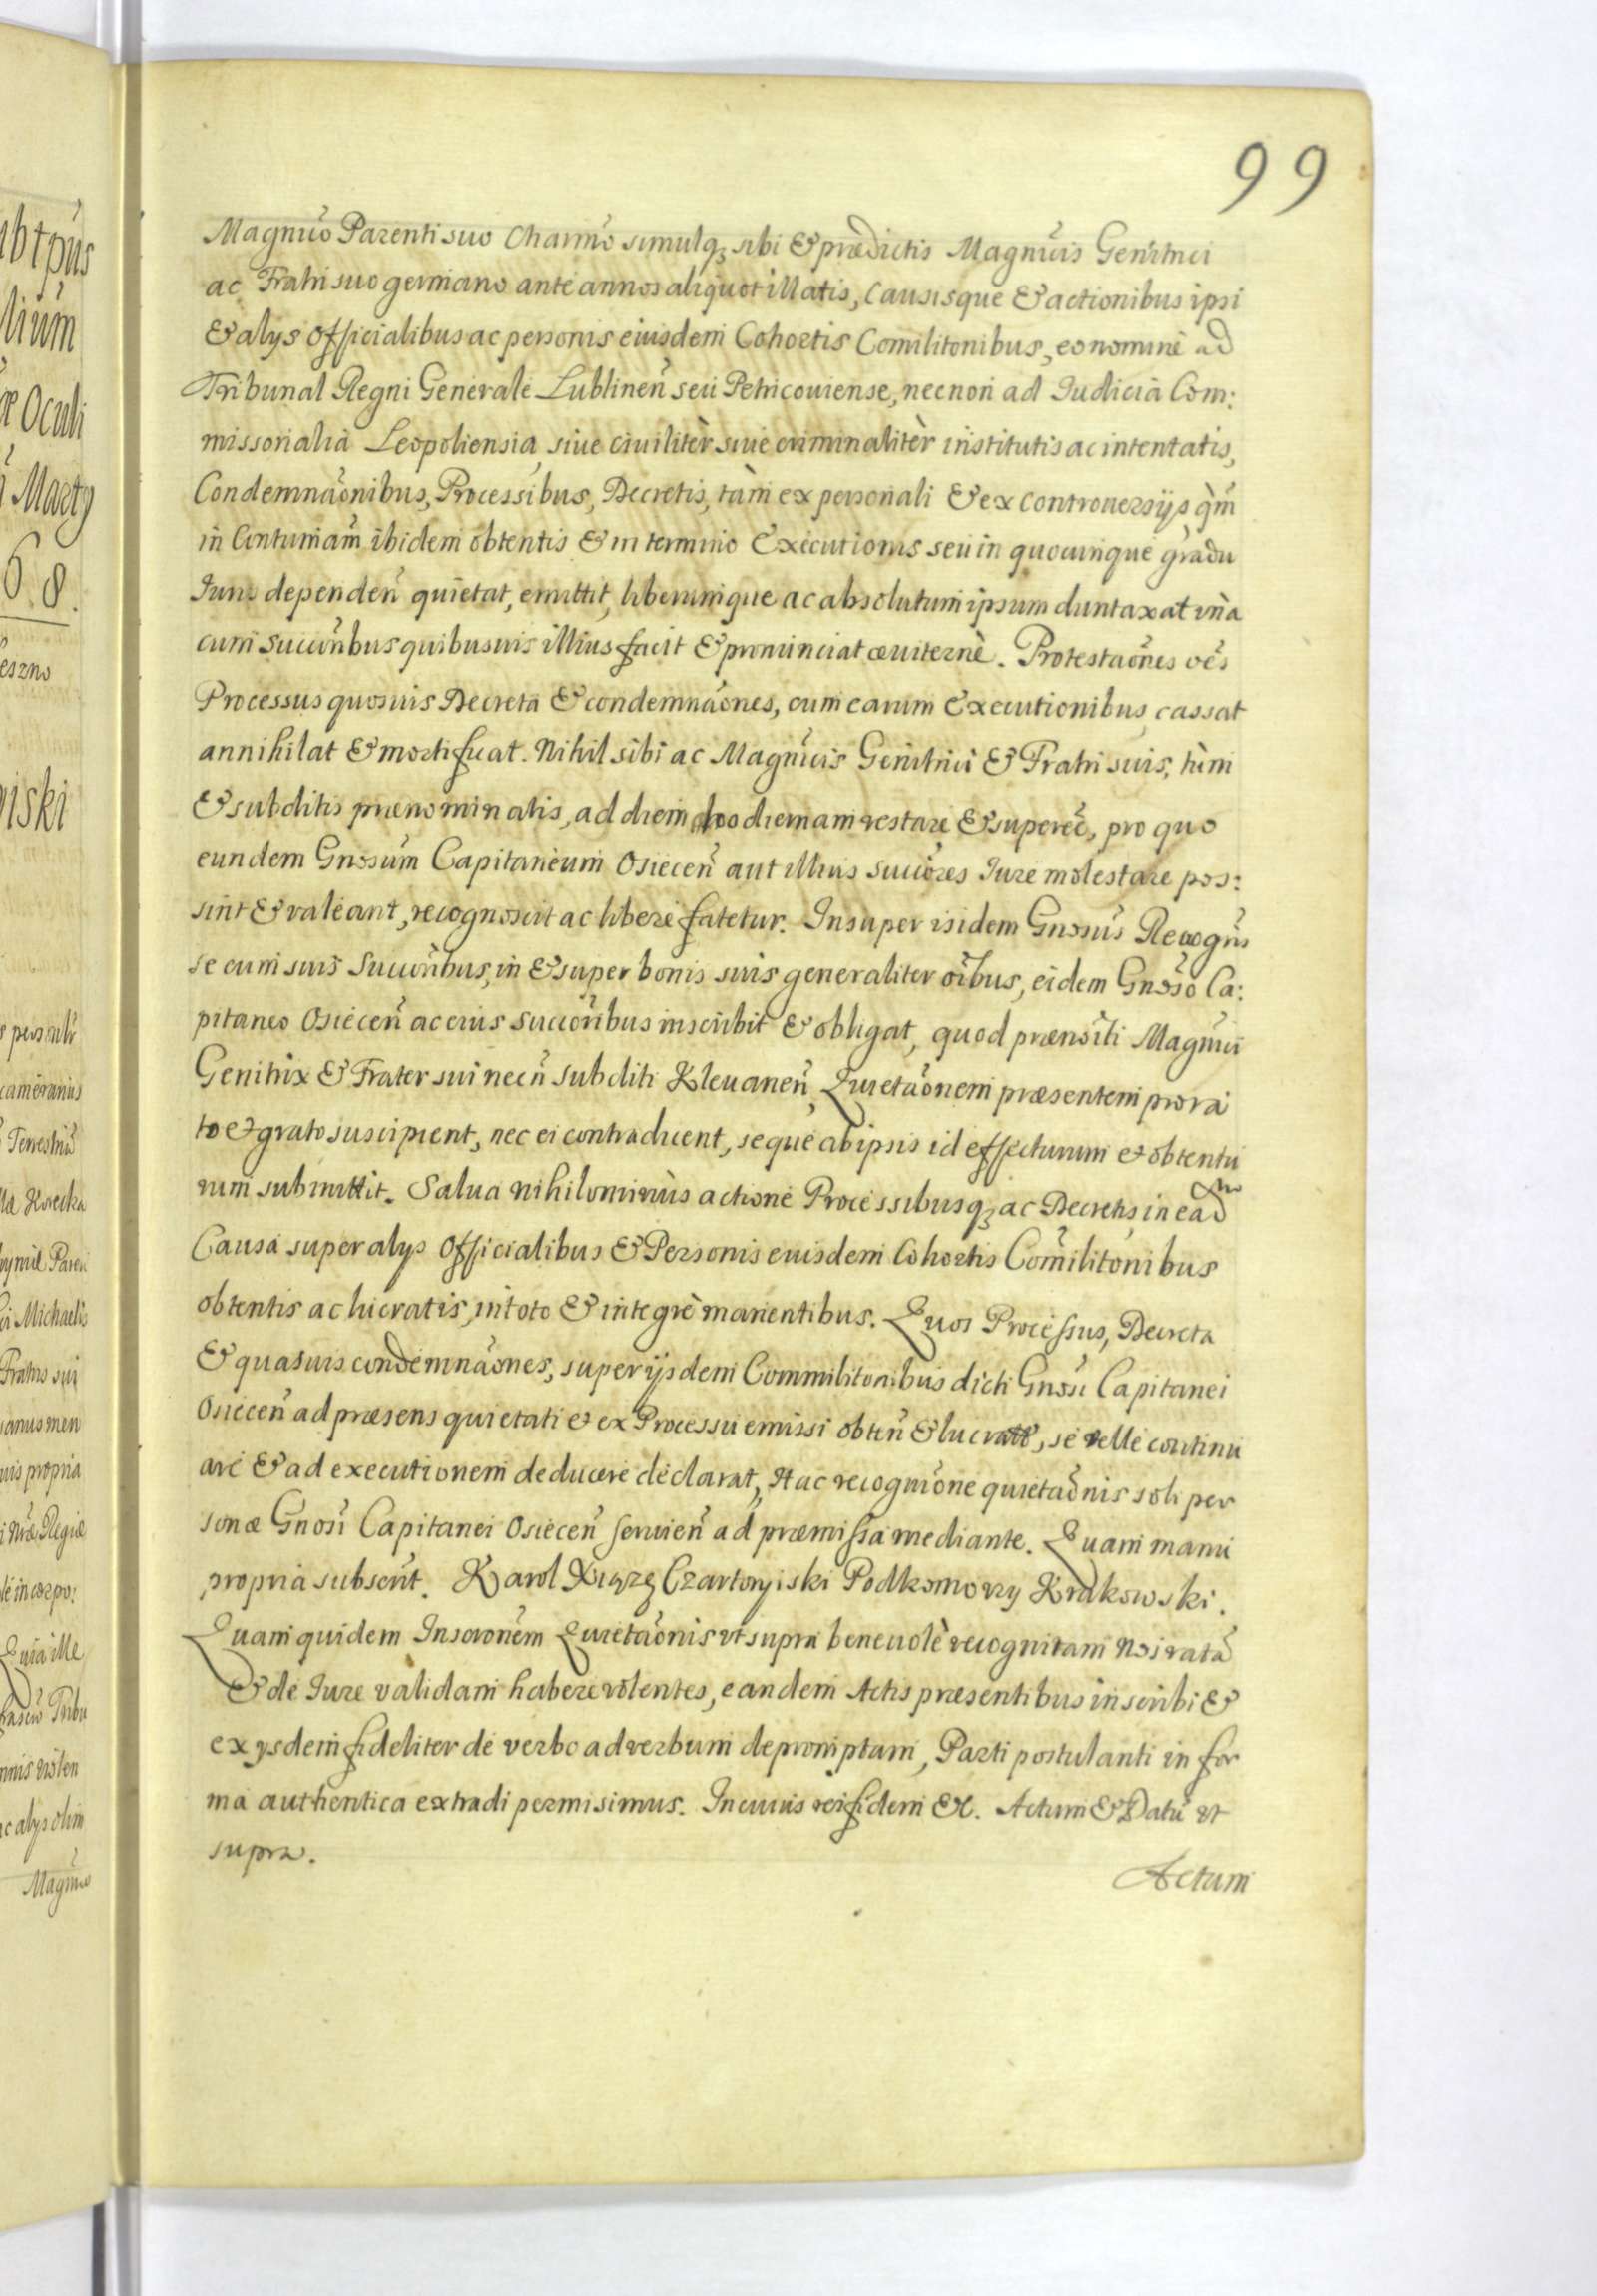 99
Magnũo Parenti suo Charmõ simulqꝫ sibi & prædictis Magnũis Genitrici
ac Fratri suo germano ante annos aliquot illatis, Causisque & actionibus ipsi
& alys Officialibus ac personis eiusdem Cohortis Comilitonibus, eo nomine ad
Tribunal Regni Generale Lublineñ seu Petricouiense, necnon ad Iudicia Com:
missorialia Leopoliensia, siue ciuilitèr siue criminalitèr institutis ac intentatis,
Condemnãonibus, Processibus, Decretis, tàm ex personali & ex controuersijs q̃m
in Contumam̃ ibidem obtentis & in termino Executionis seu in quocunque gradu
Iuris dependeñ quietat, emittit, liberumque ac absolutum ipsum duntaxat vna
cum Succoñbus quibusuis illius facit & pronunciat æuiternè. Protestãones oẽs
Processus quosuis Decreta & condemnãones, cum earum Executionibus cassat
annihilat & mortificat. Nihil sibi ac Magnũis Genitrici & Fratri suis, tùm
& subditis prænominatis, ad diem hodiernam restare & superẽe, pro quo
eundem Gnosũm Capitaneum Osieceñ aut illius Succõres Iure molestare pos:
sint & valeant, recognoscit ac liberè fatetur. Insuper isidem Gnosũs Recogñs
se cum suis Succoñbus, in & super bonis suis generaliter oĩbus, eidem Gnosõ Ca:
pitaneo Osieceñ ac eius Succoñbus inscribit & obligat, quod prænoĩti Magnũi
Genitrix & Frater sui necñ subditi Kleuaneñ Quietãonem præsentem pro ra
to et grato suscipient, nec ei contradicent, seque ab ipsis id effecturum et obtentu
rum submittit. Salua nihilominùs actione Processibusqꝫ ac Decretis in eadm
Causa super alys Officialibus & Personis euisdem Cohortis Com̃ilitonibus
obtentis ac lucratis, in toto & integrè manentibus. Quos Processus, Decreta
& quasuis condemnãones, super ijsdem Commilitonibus dicti Gnosi Capitanei
Osieceñ ad præsens quietati et ex Processu emissi obteñ & lucrat, se velle continu
are & ad executionem deducere declarat, Hac recognĩone quietãonis soli per
sonæ Gnosĩ Capitanei Osieceñ seruieñ ad præmissa mediante. Quam manu
propria subscrĩt. Karol Xiążę Czartoryiski Podkomorzy Krakowski.
Quam quidem Inscrõnem Quietãonis vt supra beneuolè recognitam Nos ratã
& de Iure validam habere volentes, eandem Actis præsentibus inscribi &
ex ysdem fideliter de verbo ad verbum depromptam, Parti postulanti in for
ma authentica extradi permisimus. In cuius rei fidem &c. Actum & Datũ vt
supra.
Actum